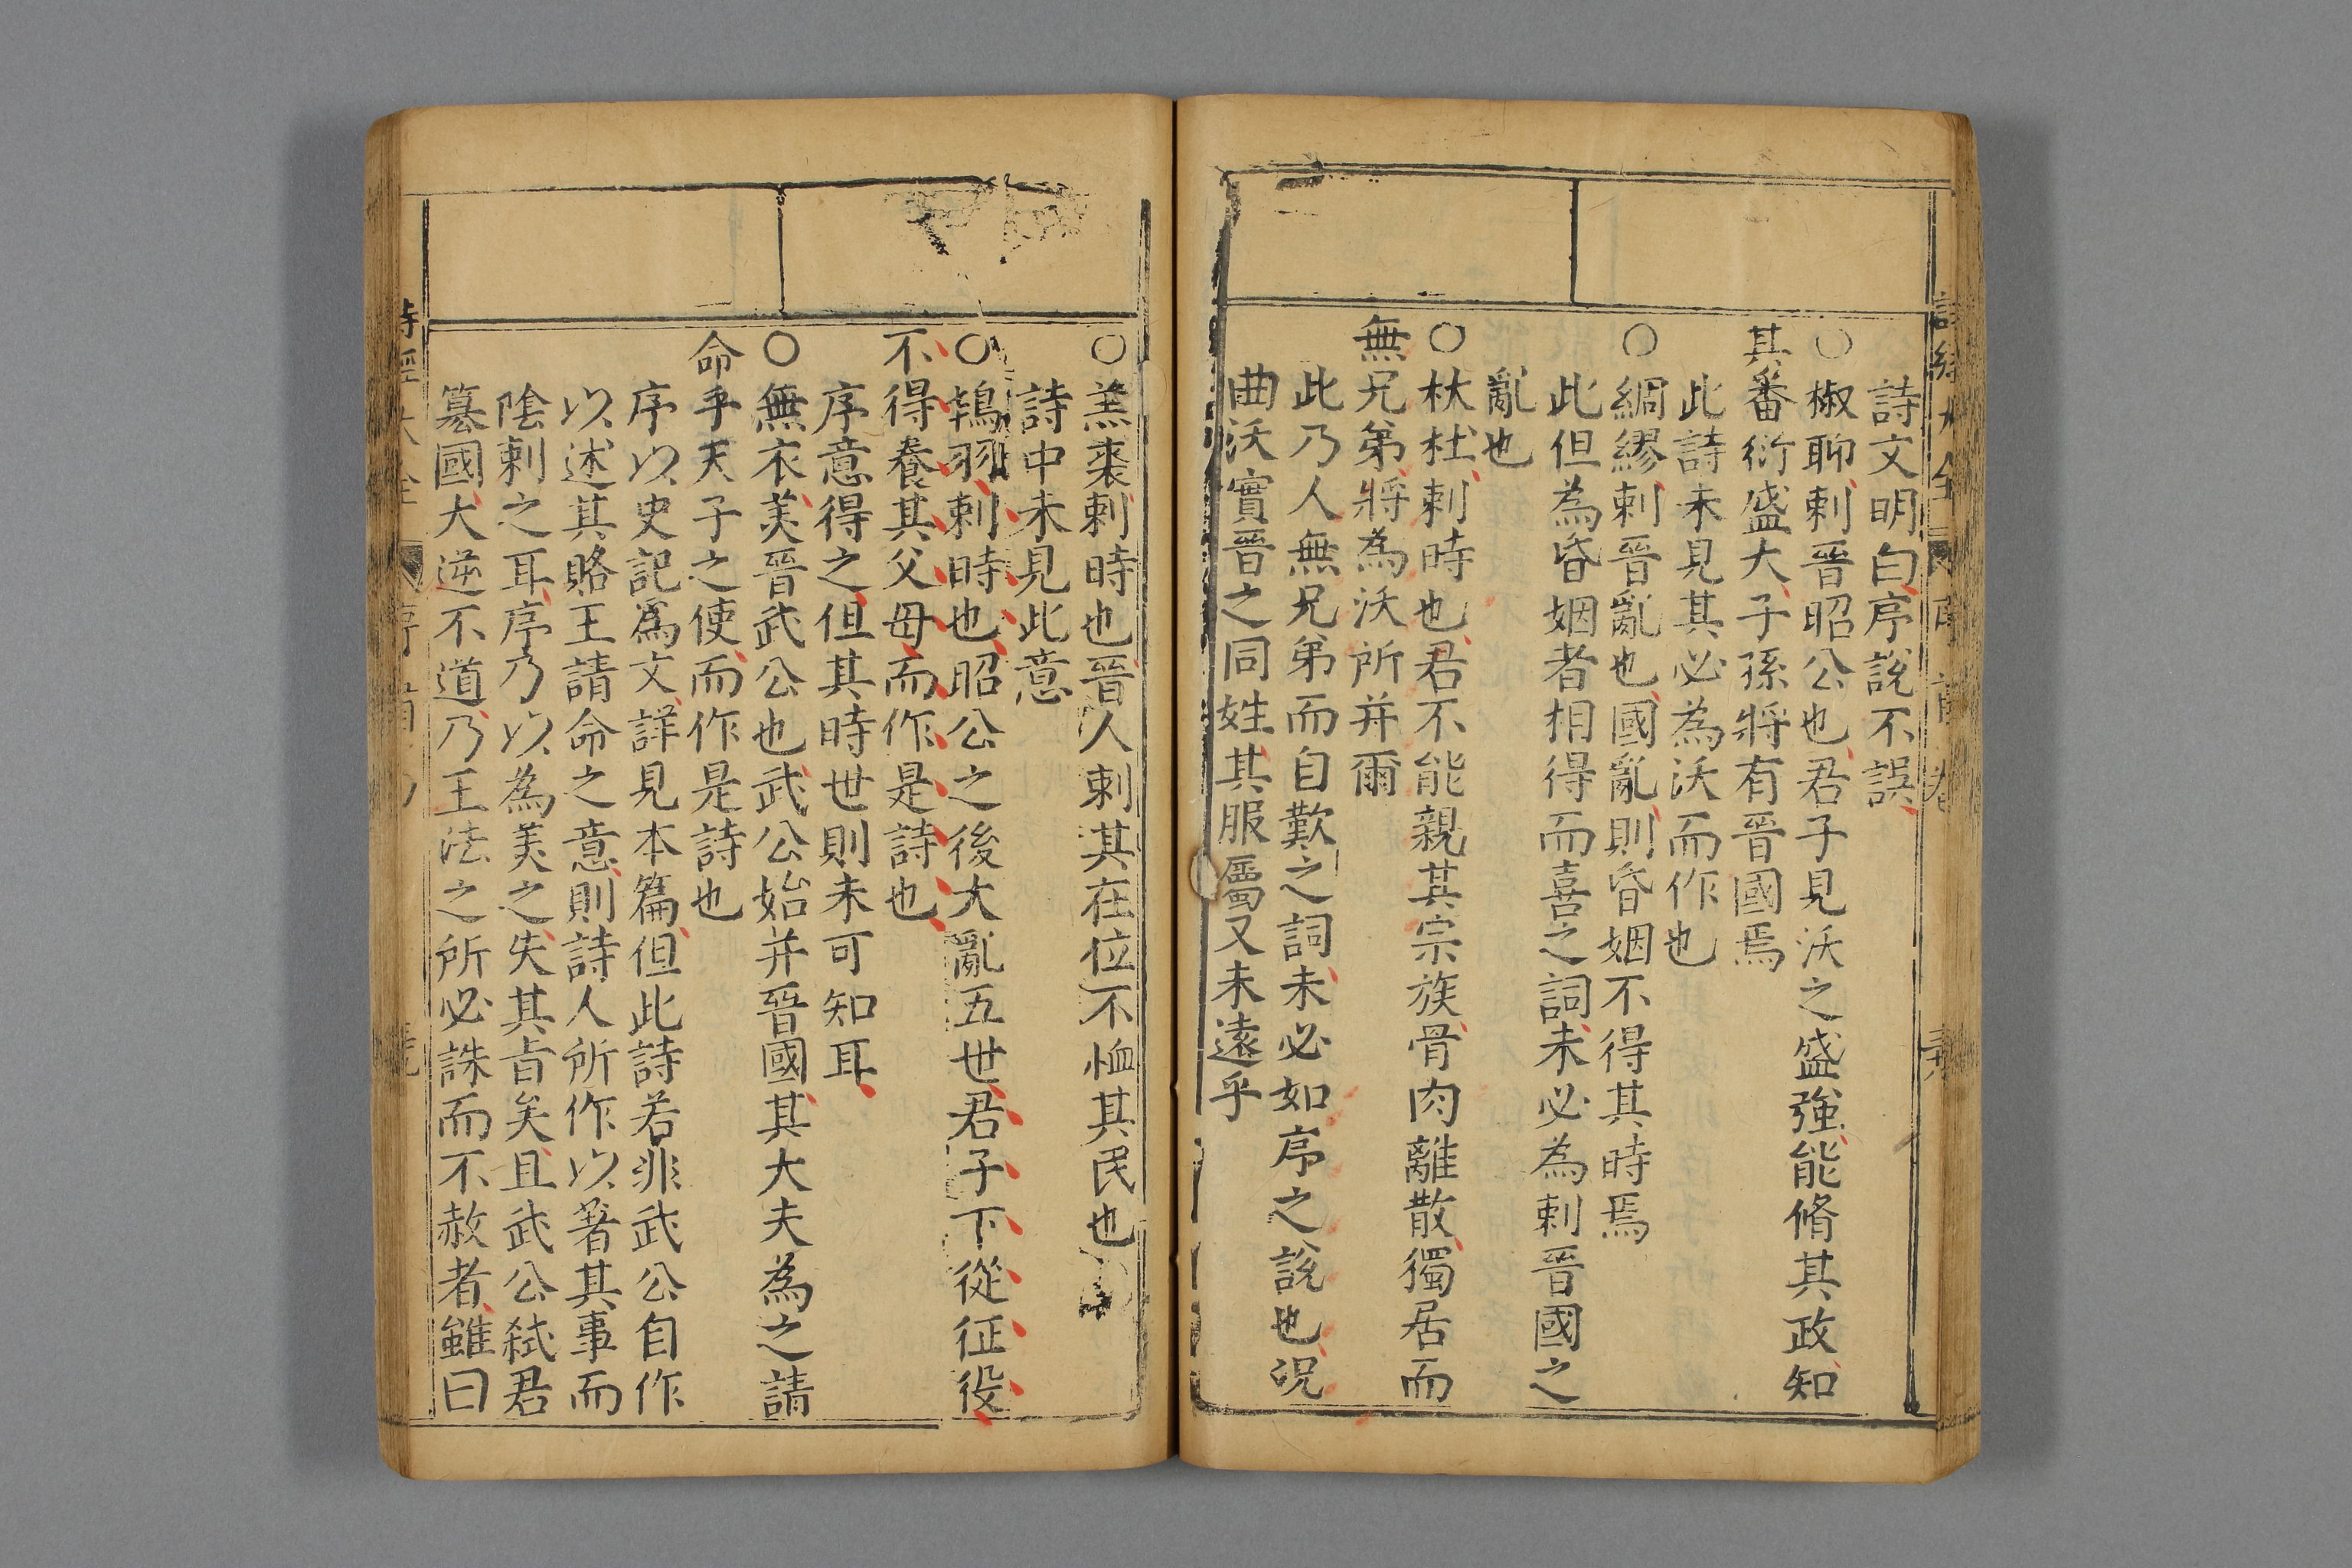 詩文明白序說不誤
○椒聊刺晉昭公也君子見沃之盛強能脩其政知
其番衍盛大子孫將有晉國焉
此詩未見其必為沃而作也
○綢繆刺晉亂也國亂則昏姻不得其時焉
此但為昏姻者相得而喜之詞未必為刺晉國之
亂也
○杕杜刺時也君不能親其宗族骨肉離散獨居而
無兄弟將為沃所并爾
此乃人無兄弟而自歎之詞未必如序之說也況
曲沃實晉之同姓其服屬又未遠乎
○羔裘刺時也晉人刺其在位不恤其民也
詩中未見此意
○鴇羽刺時也昭公之後大亂五世君子下從征役
不得養其父母而作是詩也
序意得之但其時世則未可知耳
○無衣美晉武公也武公始并晉國其大夫為之請
命乎天子之使而作是詩也
序以史記爲文詳見本篇但此詩若非武公自作
以述其賂王請命之意則詩人所作以著其事而
陰刺之耳序乃以為美之失其旨矣且武公弒君
篡國大逆不道乃王法之所必誅而不赦者雖曰